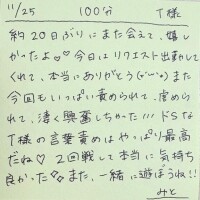 11/25 100分 T様
約20日ぶりにまた会えて、嬉し
かったよ♡♡今日はリクエスト出勤して
くれて、本当にありがとう(*´▽`*)また
今回もいっぱい責められて、虐めら
れて、凄く興奮しちゃった///ドSな
T様の言葉責めはやっぱり最高
だね♡2回戦して本当に気持ち
良かった また、一緒に遊ぼうね!!
みと